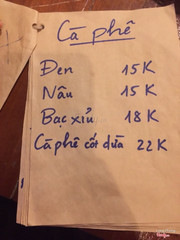 Cà phê
Đen 15K
Nâu 15K
Bạc xỉu 18K
Cà phê cốt dừa 22K